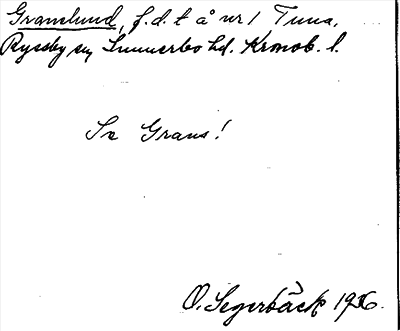 Granslund, f.d.t å nr 1 Tuna,
Ryssby sn Sunnerbo hd. Kronob. l.
Se Grans!
O. Segerbäck 1936.